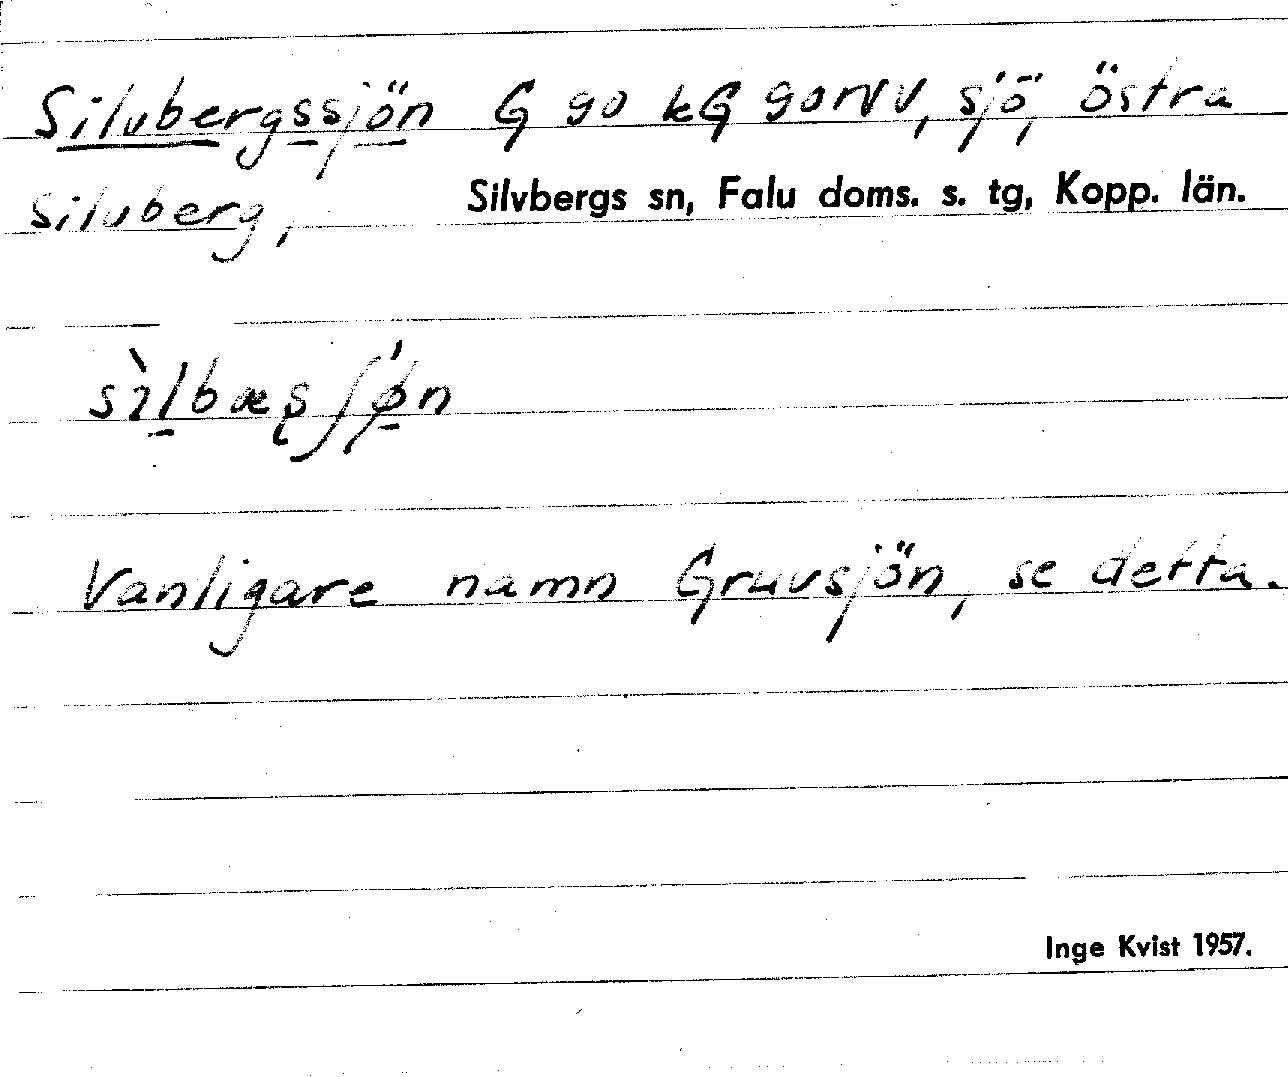 Silvbergssjön G go kG gorvv, sjö, östra
Silvberg, Silvbergs sn, Falu doms. s. tg, Kopp. län.
sìlbæʂʃǿn
Vanligare namn Gruvsjön, se detta.
Inge Kvist 1957.